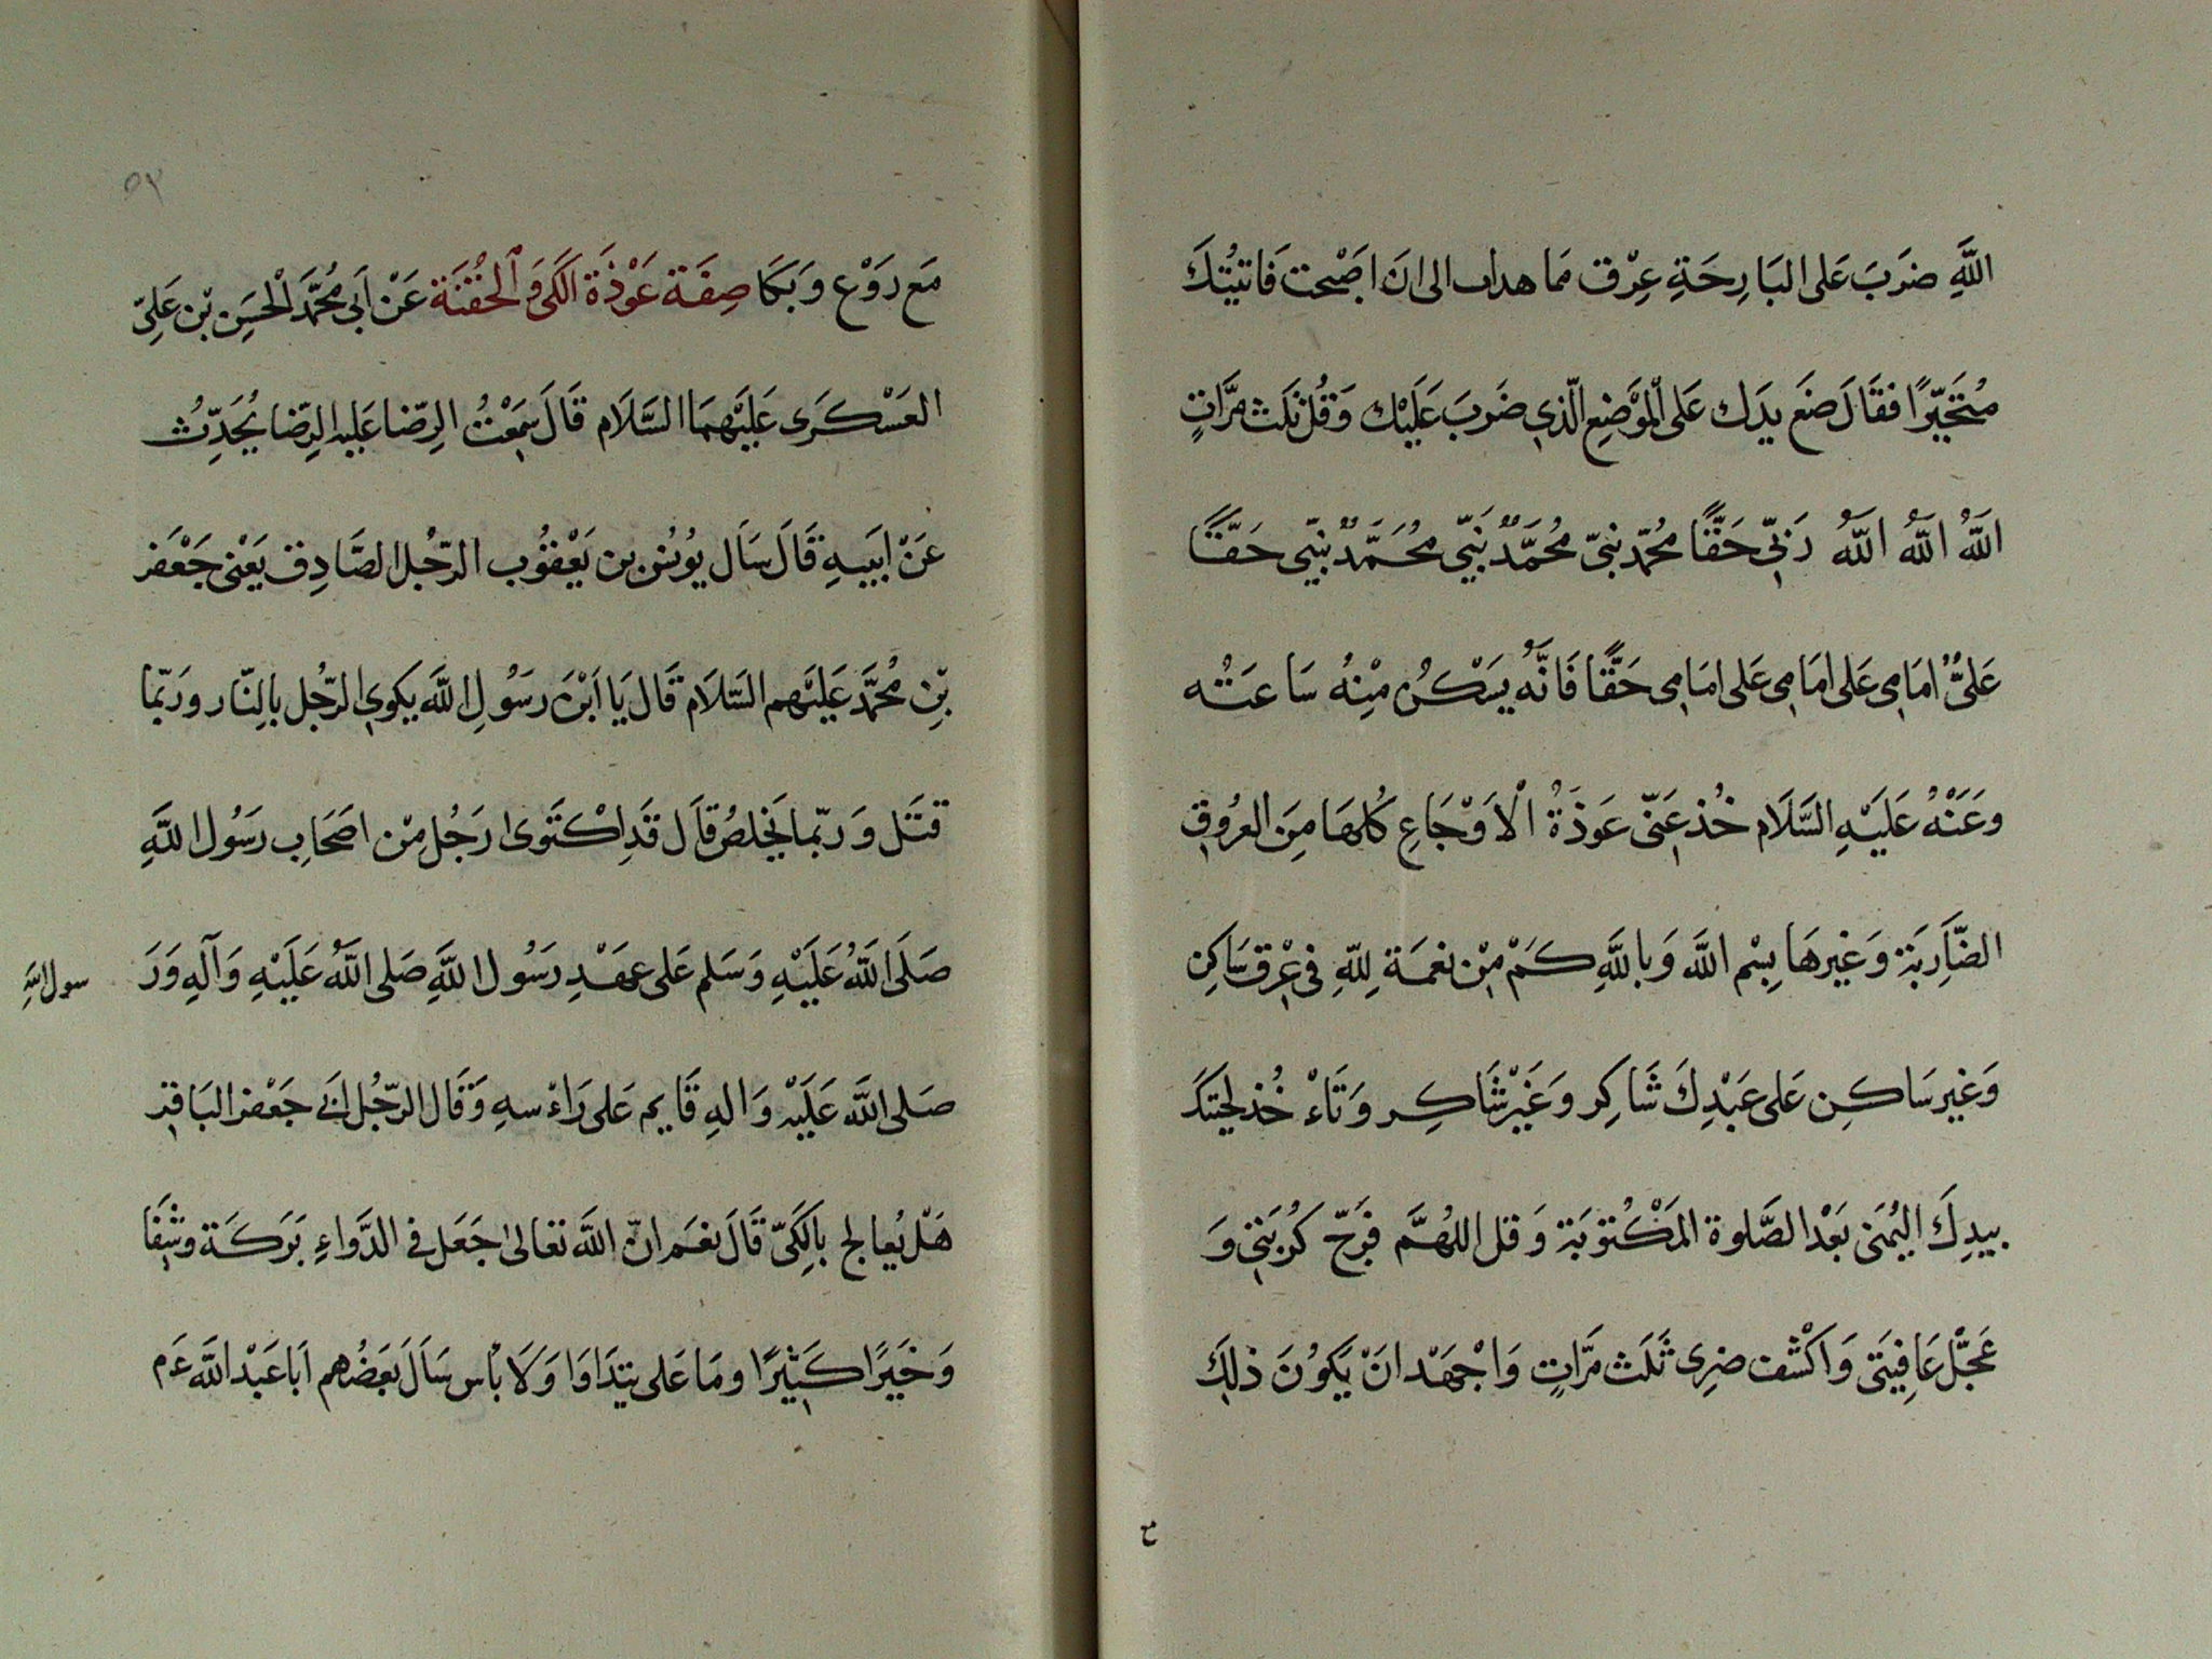 اللَّهِ ضرَبَ عَلى البَارِحَةِ عِرْق فما هدات الى انَ اصَْبحت فَاتيتُتكَ
مُتحَيّرًا فقَالَ ضعَ يدَك عَلى الْموَضِعِ الّذي ضَربَ عَليْك وَقُل ثلَث مَرَّاتٍ
اللَّهُ اللَّهُ اللَّهُ رَبيّ حَقًّا محُمّد نبيّ محُمَّدٌ نَبيّ محُمَّدٌ نبيّ حَقّاً
عَليٌّ امَامي عَلى امَامي عَلى امَامي حَقًّا فَانَّهُ يَسْكُن مِنْهُ سَاعتُه
وعَنْهُ عَليَْهِ السَّلَام خُذ عَنيّ عَوذَةُ الْاَوْجَاعِ كُلهَا مِنَ العرُوقِ
الضَّاِربَة وَغيرهَا بِسْمِ اللَّه وَباللَّهِ كَمْ مِن نعمَة لِلّهِ في عِرْقٍ سَاكِنِ
وَغيرسَاكِن عَلى عَبْدِكَ شَاكِر وَغَيْرشَاكِر وَتَاءْ خُذ لحيَتكَ
بيدِكَ اليُمنَى بَعْد الصَّلوة المَكْتوُبَة وَقل اللهُمَّ فَرّج كُربَتي وَ
عَجّلْ عَافِيتَي وَاكْشف ضرِى ثَلَث مَرَّاتٍ وَاجْهَد انَْ يَكوُنَ ذلِكَ
مَع رَوْع وَبَكَا صِفَة عَوْذَة الَكَيّ وَ الْحُقْنَة عَنْ اَبي مُحمَّد الْحسَِن بْن عَليِّ
العَسْكَرى عَلَيْهمَا السَّلَام قَالَ سَمِعْتُ الرِّضا عَليه الرِّضا يُحَدِّثُ
عَنْ ابَيهِ قَالَ سَاَل يوُنسُ بن يَعْقوُب الرّجُل الصَّادِق يَعْنى جَعْفَر
بْنِ مُحمَّد عَليَْهم السَّلَام قَال يَا ابْنَ رسَوُلِ اللَّه يكوي الرّجُل بالِنّار ورَبمّا
قتَل وَربمّا يَخلصُ قاَل قَدِ اكْتَوى رَجُل مِنْ اصَحَابِ رسَوُل اللَّهِ
صَلَى اللَّهُ عَلَيْهِ وَسَلم عَلى عهَدِ رَسُول اللَّهِ صَلى اللَّهُ عَليَْهِ وَآلِهِ وَرَ سول اللَّهِ
صَلى اللَّه عَليَْه وَالهِ قَايم عَلى رَاءْسهِ وَقَال الرّجُل لاَبي جَعْفر البَاقِر
هَلْ يُعالج بالِكَيّ قَالَ نعَم انّ اللَّه تعَالى جَعَل في الدَّواءِ بَركَة وشِفَا
وَخَيرًا كَثِيرًا ومَا عَلى يتدَاوَا وَلَا بْاس سَاَلَ بعَضُهم اَبا عَبْد اللَّه عَم